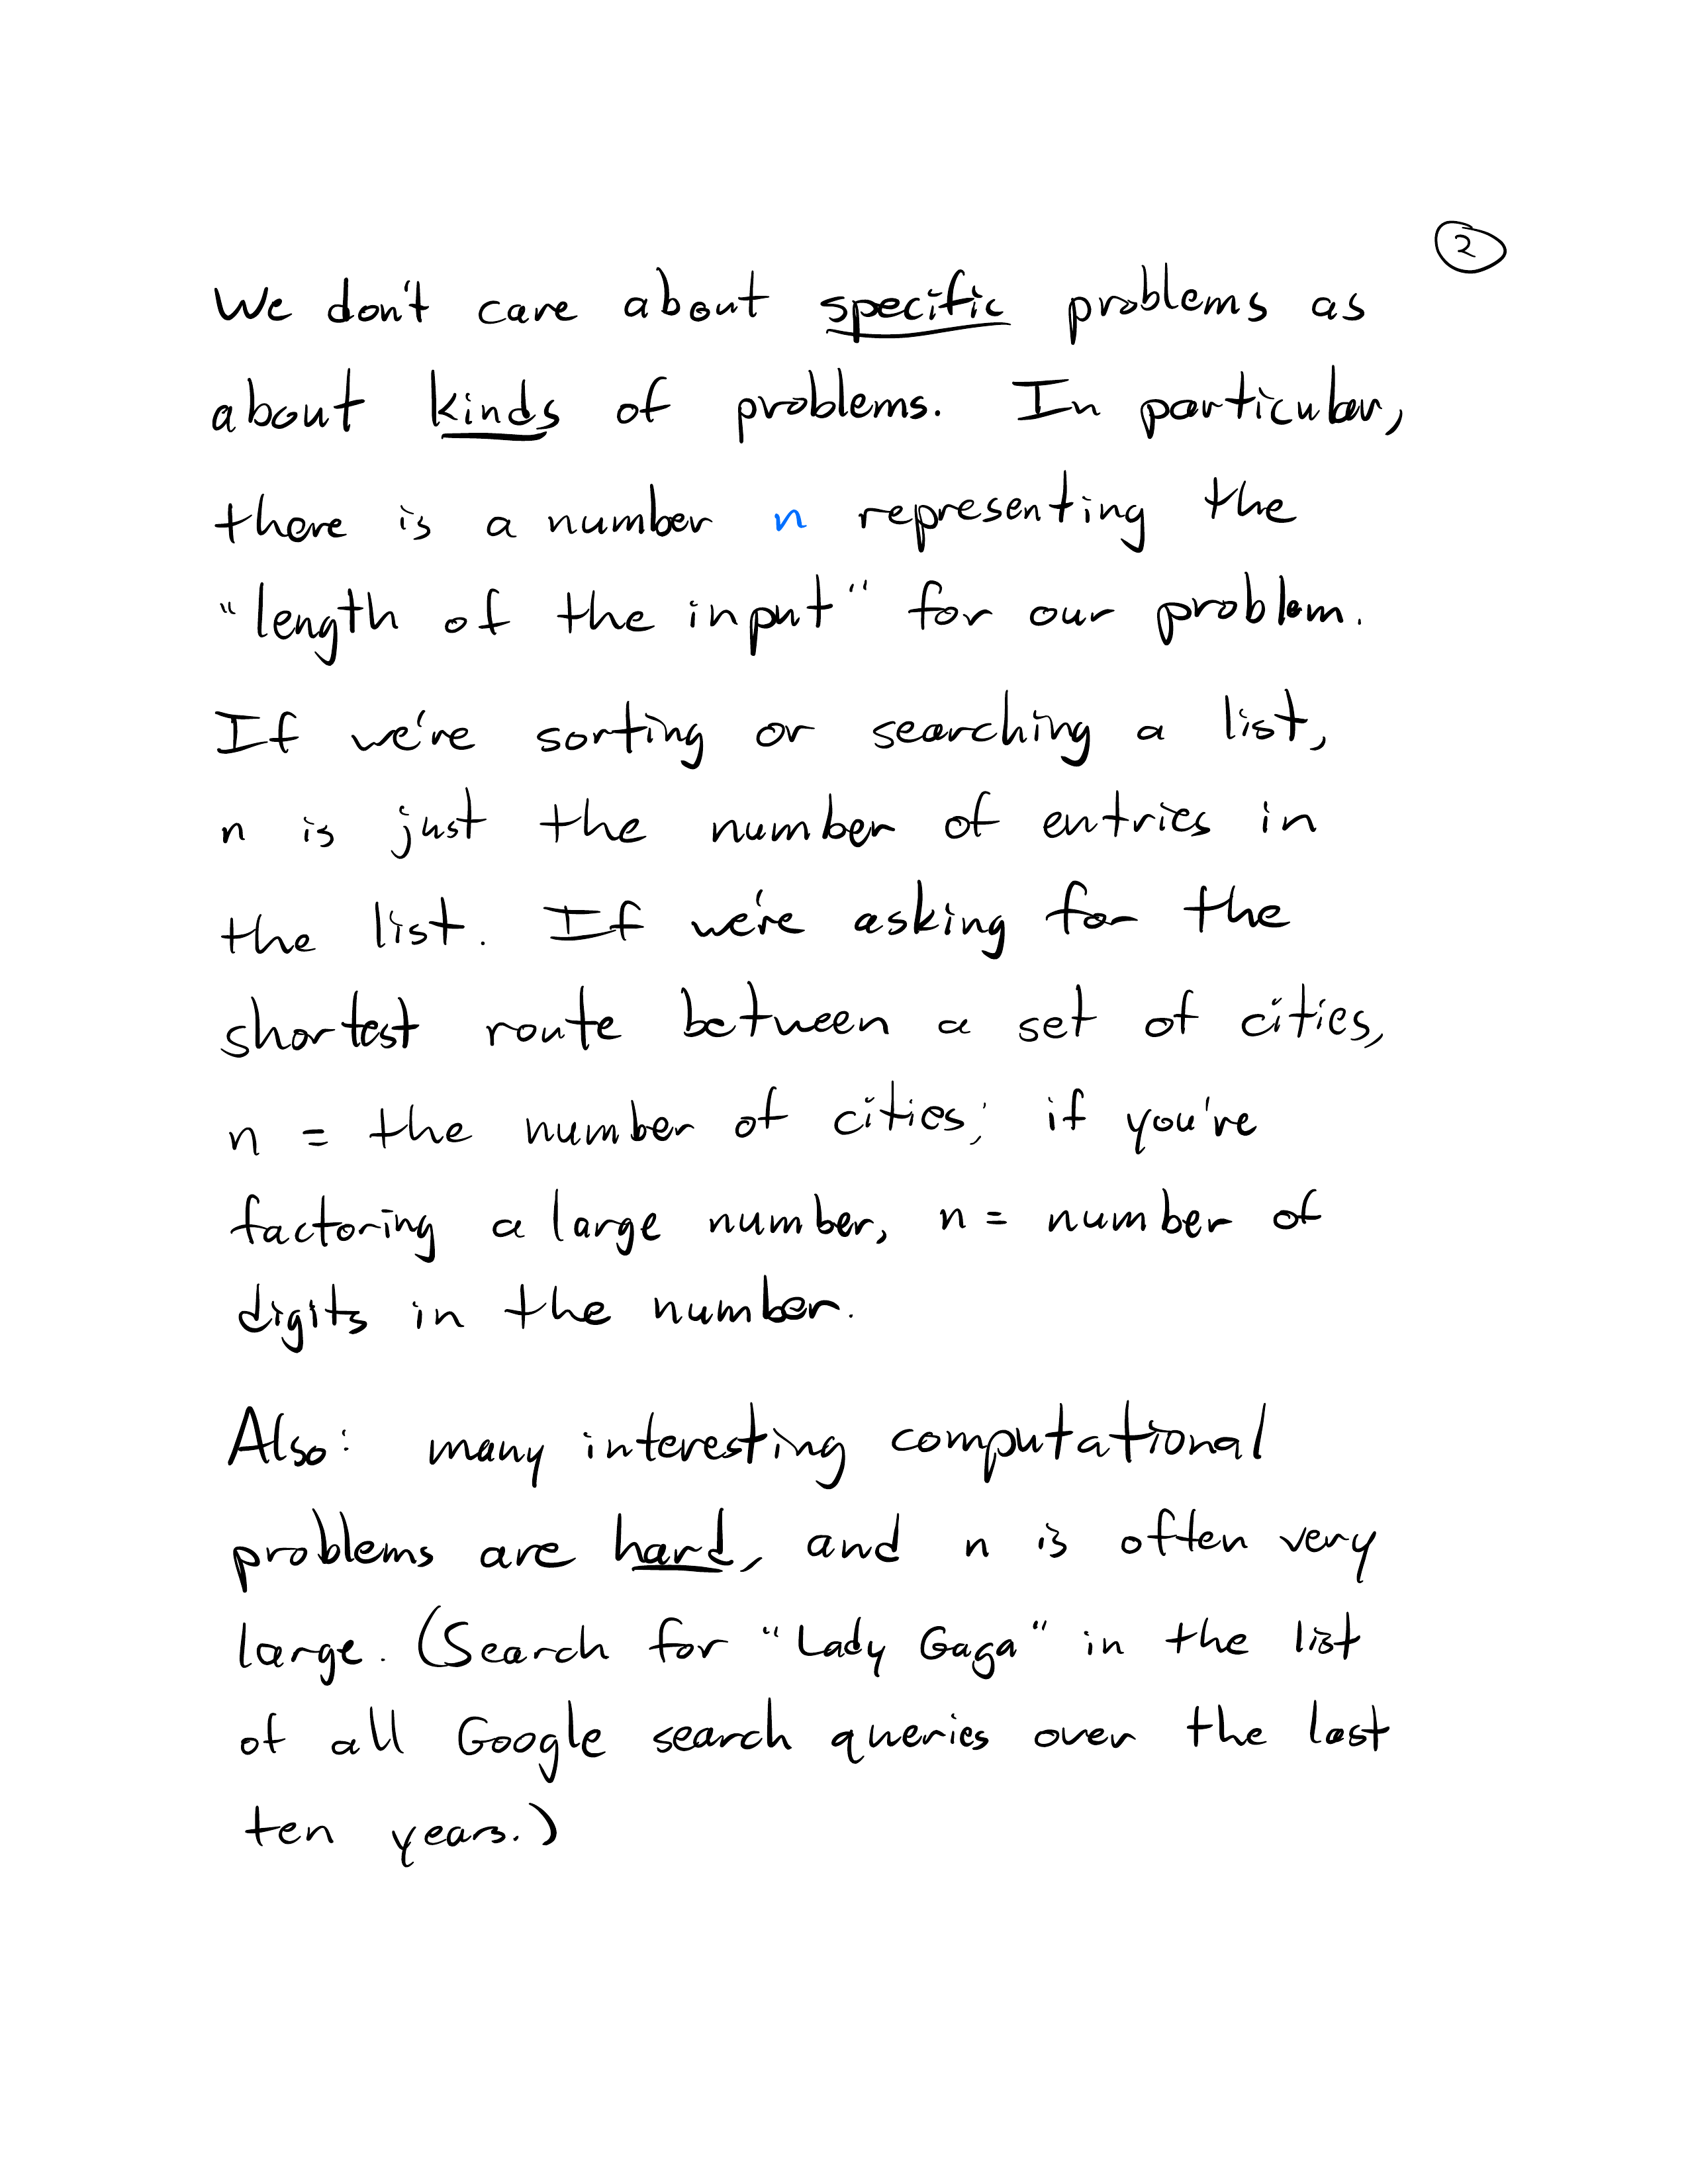 2
We don't care about specific problems as
about kinds of problems. In particular,
there is a number n representing the
"length of the input" for our problem.
If we're sorting or searching a list,
n is just the number of entries in
the list. If we're asking for the
shortest route between a set of cities,
n = the number of cities; if you're
factoring a large number, n = number of
digits in the number.
Also: many interesting computational
problems are hard, and n is often very
large. (Search for "Lady Gaga" in the list
of all Google search queries over the last
ten years.)